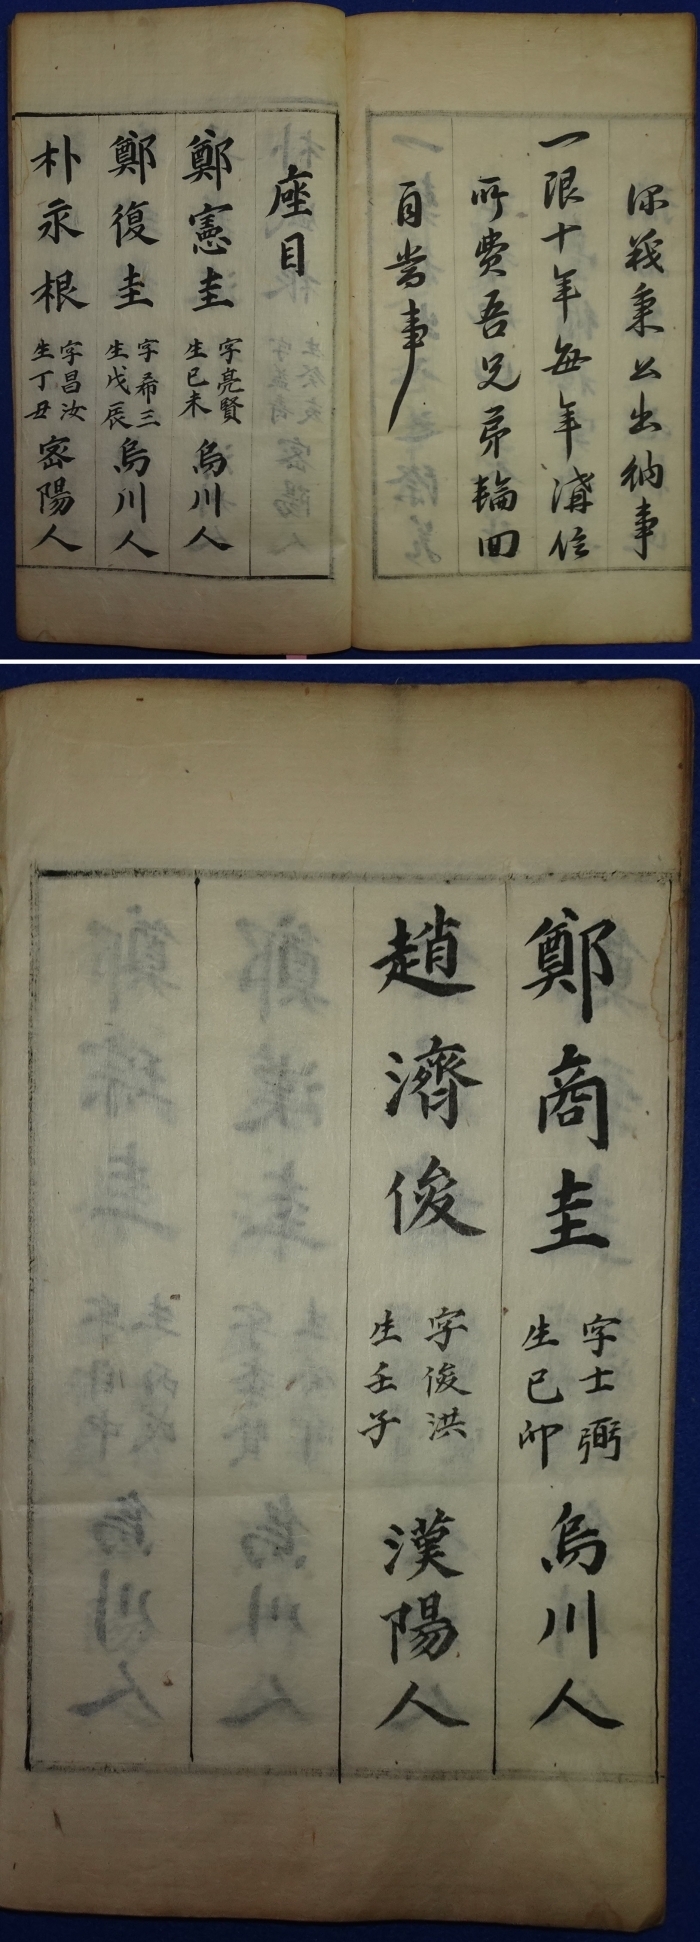 深義秉公出納事
一限十年每年講信
所費吾兄弟輪回
自當事
座目
鄭憲圭 字亮賢 生己未 烏川人
鄭復圭 字希三 生戊辰 烏川人
朴永根 字昌汝 生丁丑 密陽人
鄭商圭 字士弼 生己卯 烏川人
趙濟俊 字俊洪 生壬子 漢陽人